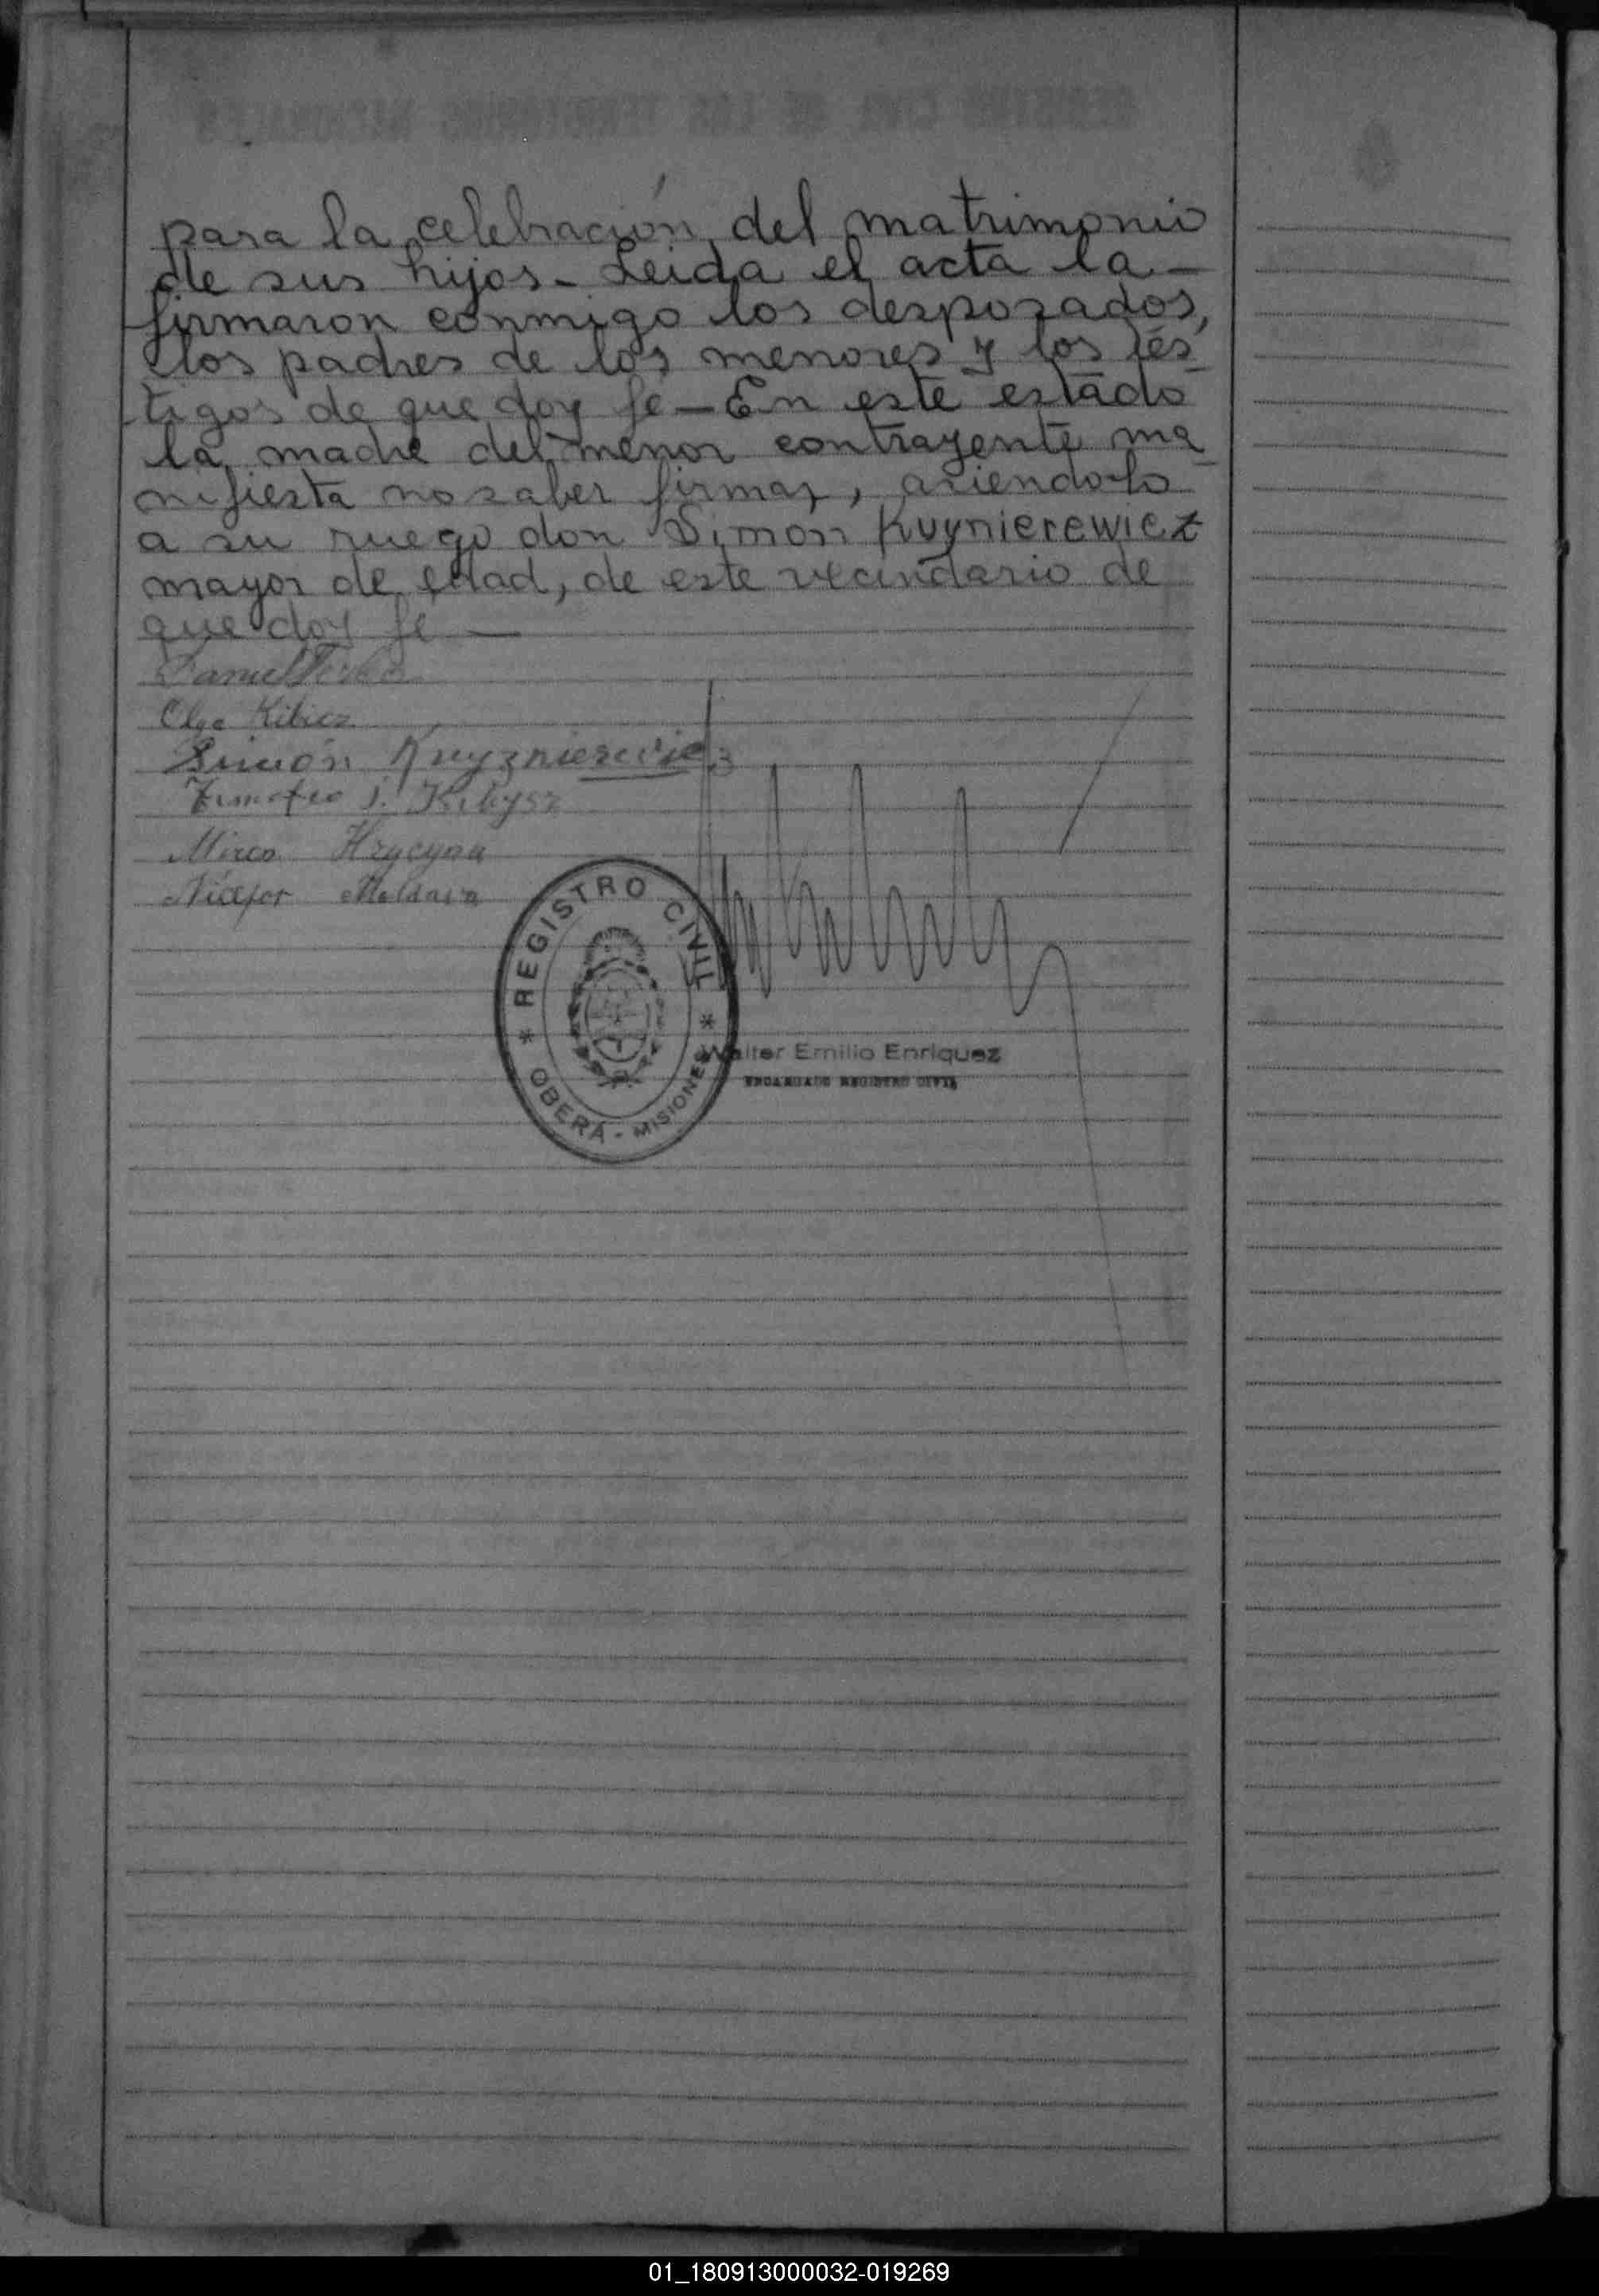 para la celebración del matrimonio
de sus hijos - Leida el acta la -
firmaron conmigo los desposados,
los padres de los menores y los tés
tigos de que doy fé - En este estado
la madre del menor contrayente ma
nifiesta no saber firmar, aciendolo
a su ruego don Simon Kuynierewicz
mayor de edad, de este vecindario de
que doy fe —
Olga Kibicz
Simón Kuyznierevicz
Timoteo J. Kibysz
Mirco Hrycyna
Nicefor
REGISTRO CIVIL
* OBERÁ - MISIONES *
Walter Emilio Enriquez
ENCARGADO REGISTRO CIVIL
01_180913000032-019269